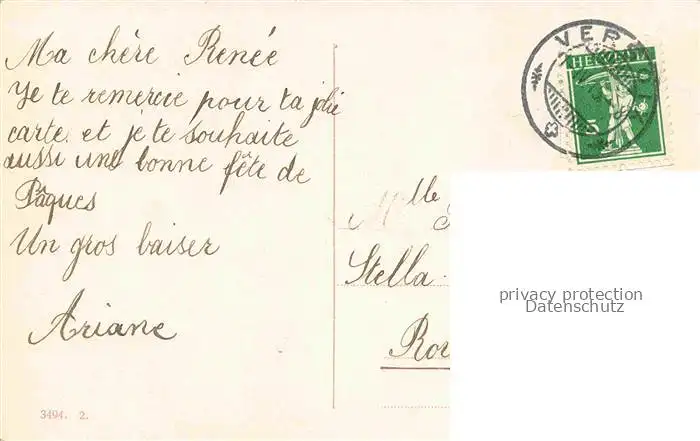 Ma chère Renée
Je te remercie pour ta jolie
carte. et je te souhaite
aussi une bonne fête de
Pâques
Un gros baiser
Ariane
3494. 2.
VERSOIX
HELVETIA
5
Mlle
Stella
privacy protection
Datenschutz